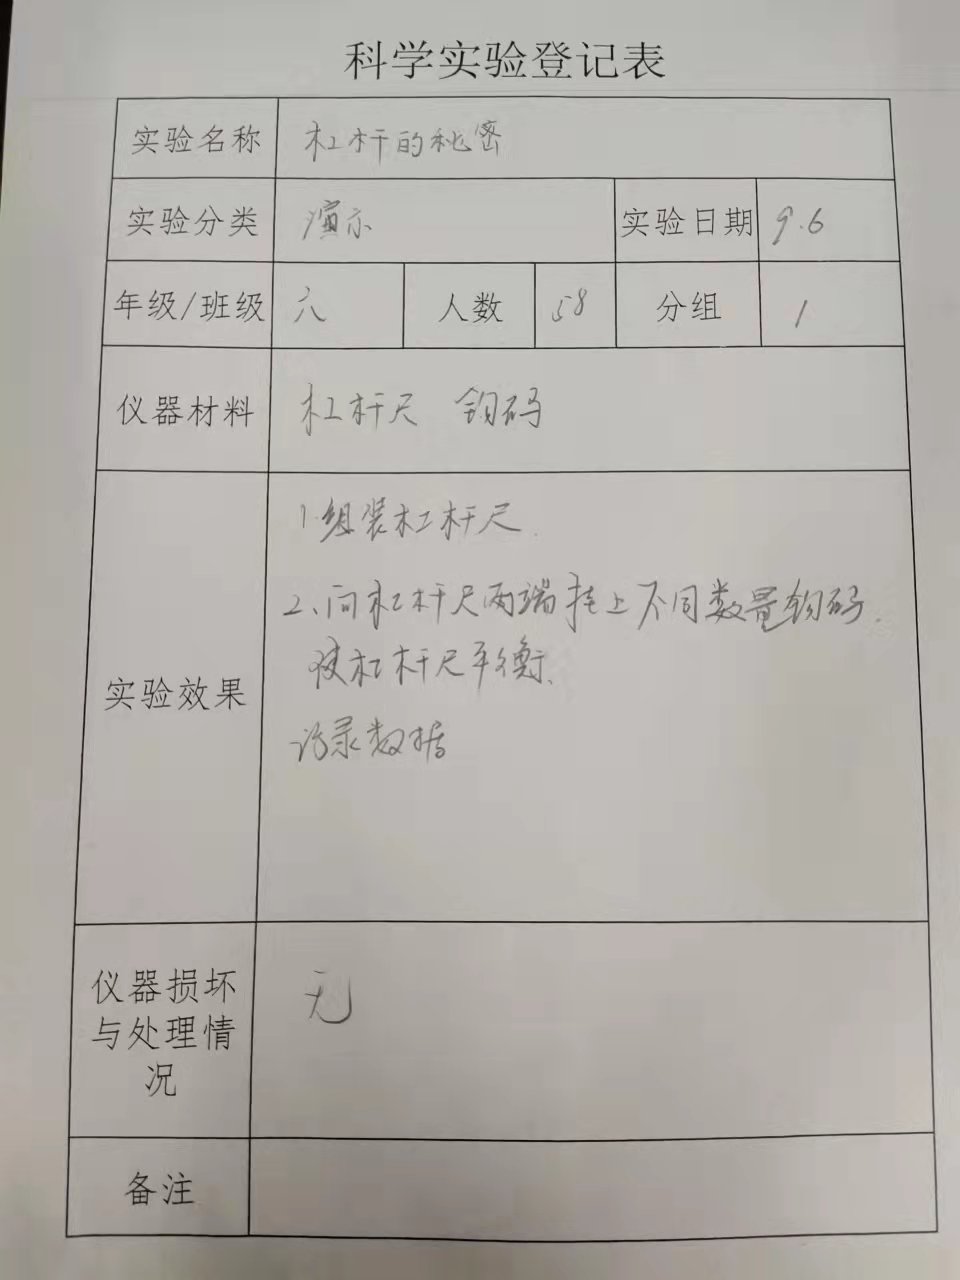 科学实验登记表
实验名称 杠杆的秘密
实验分类 演示 实验日期 9.6
年级/班级 六 人数 58 分组 1
仪器材料 杠杆尺 钩码
实验效果
1.组装杠杆尺.
2、向杠杆尺两端挂上不同数量钩码.
使杠杆尺平衡、
记录数据
仪器损坏
与处理情
况
无
备注